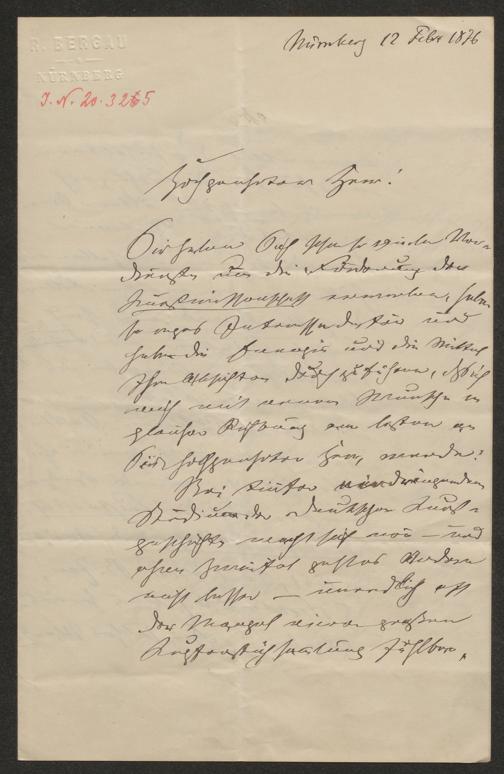 R. BERGAU
NÜRNBERG
J. N. 20.3265
Nürnberg 12 Febr 1876
Hochgeehrter Herr!
Sie haben Sich schon so viele Ver-
dienste um die Förderung der
Kunstwissenschaft erworben, haben
so reges Interesse dafür und
haben die Energie und die Mittel
Ihre Absichten durchzuführen, daß ich
mich mit einem Wunsche in
gleicher Richtung am besten an
Sie, hochgeehrter Herr, wende.
Bei tiefer eindringendem
Studium der deutschen Kunst-
geschichte macht sich mir – und
ohne Zweifel geht es Anderen
nicht besser – unendlich oft
der Mangel einer großen
Kupferstichsammlung fühlbar,